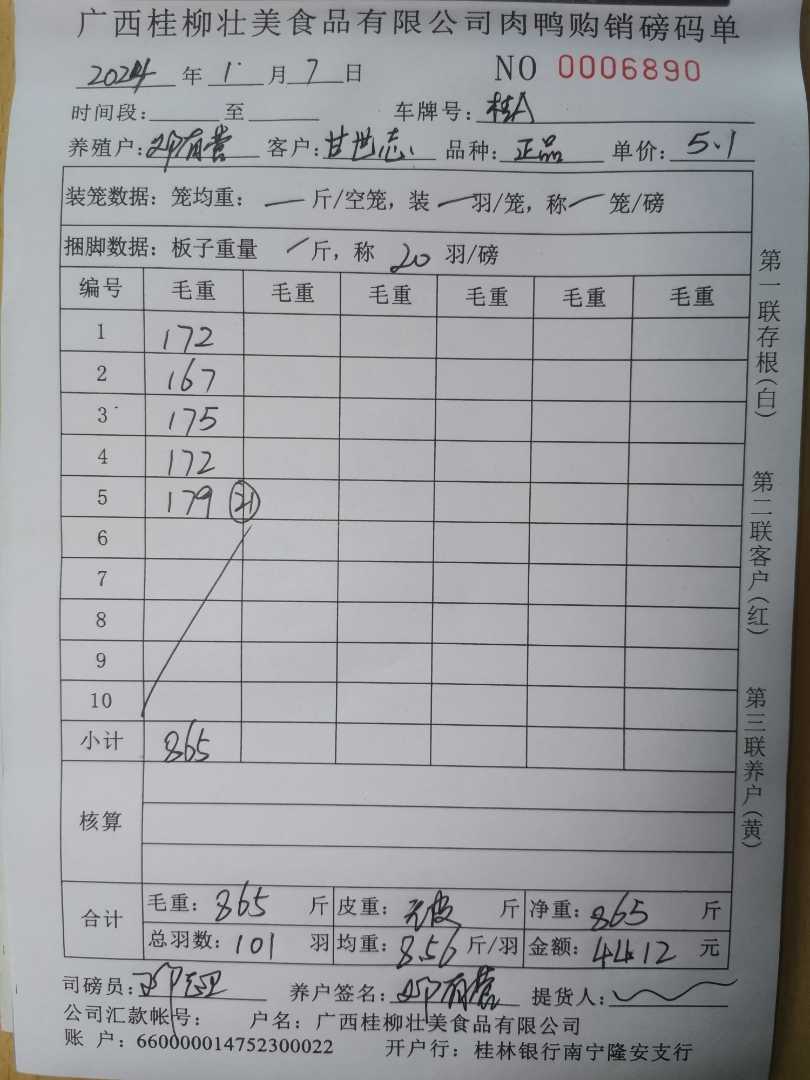 广西桂柳壮美食品有限公司肉鸭购销磅码单
2024 年 1 月 7 日 NO 0006890
时间段: 至 车牌号: 桂A
养殖户: 邓有营 客户: 甘世志 品种: 正品 单价: 5.1
装笼数据: 笼均重: 一 斤/空笼, 装 一 羽/笼, 称 一 笼/磅
捆脚数据: 板子重量 / 斤, 称 20 羽/磅
编号 毛重 毛重 毛重 毛重 毛重 毛重
1 172
2 167
3 175
4 172
5 179 21
6
7
8
9
10
小计 865
核算
合计 毛重: 865 斤 皮重: 无皮 斤 净重: 865 斤
总羽数: 101 羽 均重: 8.56 斤/羽 金额: 4412 元
司磅员: 邓 养户签名: 邓有营 提货人:
公司汇款帐号: 户名: 广西桂柳壮美食品有限公司
账 户: 660000014752300022 开户行: 桂林银行南宁隆安支行
第一联存根(白)
第二联客户(红)
第三联养户(黄)